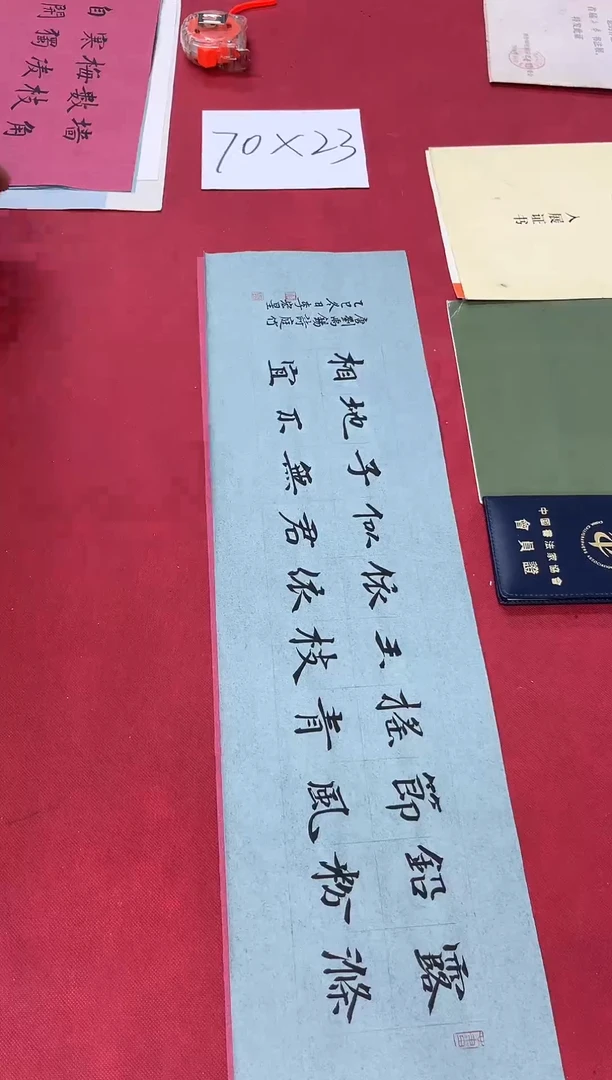 墙角
數枝
梅凌
寒獨
自開
70×23
特发此证
入展证书
中國書法家協會
會員證
露滌
鉛粉
節風
搖青
玉枝
依依
似君
子無
地不
相宜
唐劉禹錫詩庭竹
乙巳